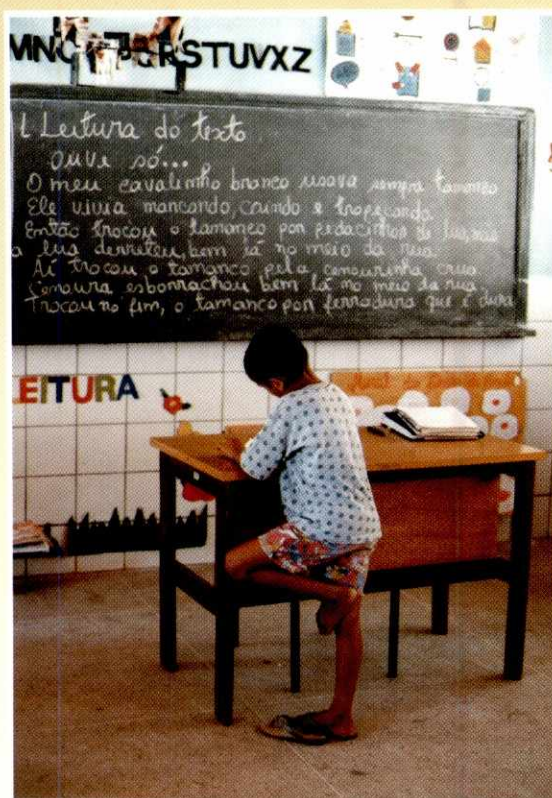 MN RSTUVXZ
1 Leitura do texto
Ouvi só...
O meu cavalinho branco usava sempre tamanco
Ele vivia mancando, caindo e tropeçando
Então trocou o tamanco por pedacinhos de lua, mas
a lua derreteu, bem lá no meio da rua
Aí trocou o tamanco pela cenourinha crua
Cenoura esborrachou bem lá no meio da rua
Trocou no fim, o tamanco por ferradura que é dura
LEITURA